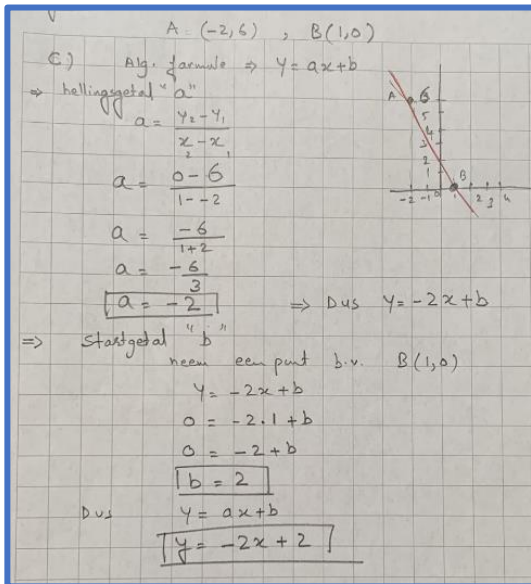 A = (-2,6) , B(1,0)
C.) Alg. formule ⇒ y = ax+b
⇒ hellingsgetal "a"
a = y₂ - y₁ / x₂ - x₁
a = 0 - 6 / 1 - -2
a = -6 / 1+2
a = -6 / 3
a = -2 ⇒ Dus y = -2x+b
⇒ Startgetal "b"
neem een punt b.v. B(1,0)
y = -2x+b
0 = -2·1+b
0 = -2+b
b = 2
Dus y = ax+b
y = -2x + 2
A 6
5
4
3
2
1
B
-2 -1 0 1 2 3 4